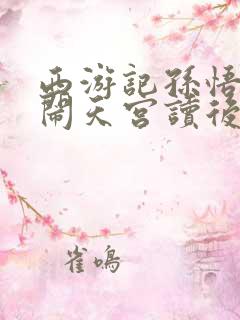 西游記孫悟
鬧天宮讀後
雀鳴